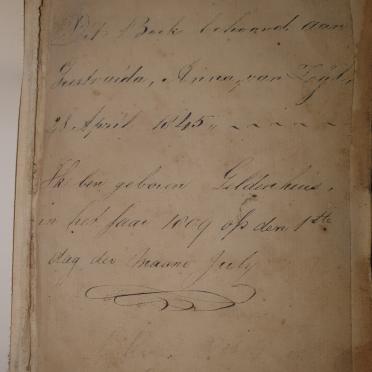 Dit Boek behoord aan
Geertruida, Anna, van Zyl,
28 April 1845,,
Ik ben geboren Geldenhuis,
in het Jaar 1809 op den 1ste
dag der Maand July